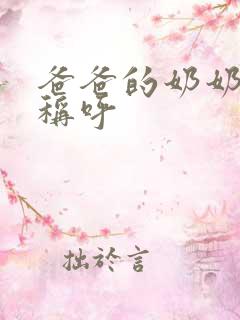 爸爸的奶奶
稱呼
拙於言